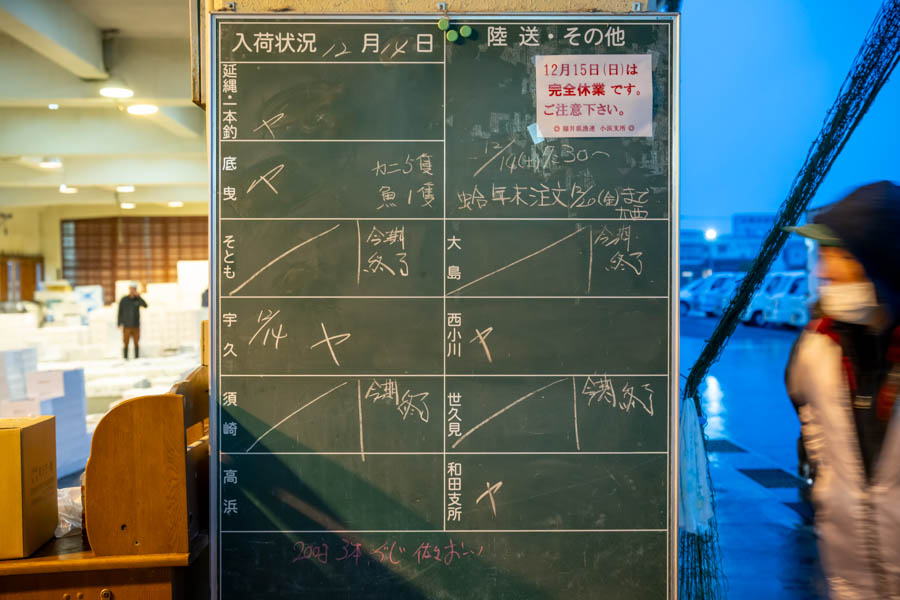 入荷状況 12月14日
陸送・その他
12月15日(日)は
完全休業です。
ご注意下さい。
◎ 福井県漁連 小浜支所 ◎
延縄・一本釣
ヤ
12/14(土) 7:30〜
底曳
ヤ
カニ5隻
魚1隻
年末注文12/20(金)まで
そとも
今期
終了
大島
今期
終了
宇久
12/14
ヤ
西小川
ヤ
須崎
今期
終了
世久見
今期
終了
高浜
和田支所
ヤ